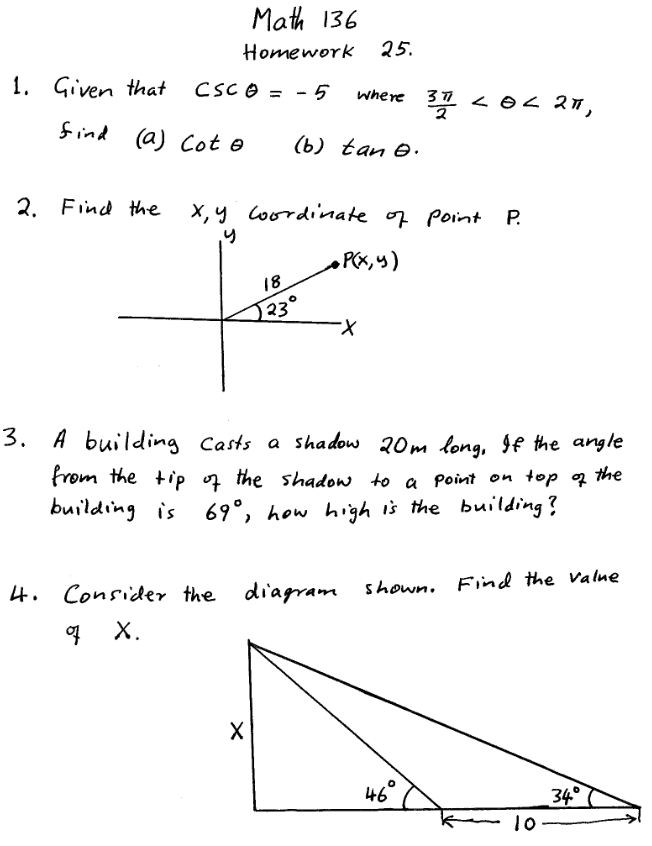 Math 136
Homework 25.
1. Given that csc θ = -5 where 3π/2 < θ < 2π,
find (a) cot θ (b) tan θ.
2. Find the x, y coordinate of point P.
y
P(x, y)
18
23°
x
3. A building casts a shadow 20m long. If the angle
from the tip of the shadow to a point on top of the
building is 69°, how high is the building?
4. Consider the diagram shown. Find the value
of X.
X
46°
34°
10